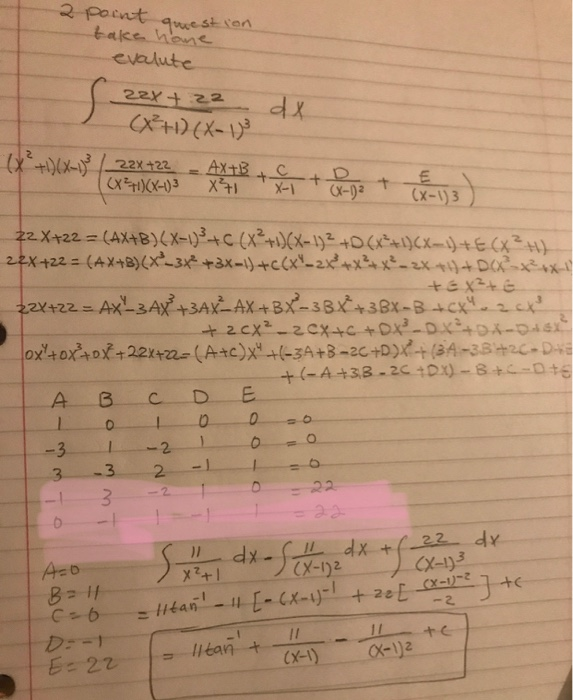 2 point question
take home
evalute
∫ 22x + 22 / (x²+1)(x-1)³ dx
(x²+1)(x-1)³ ( 22x+22 / (x²+1)(x-1)³ = Ax+B / x²+1 + C / x-1 + D / (x-1)² + E / (x-1)3 )
22x+22 = (Ax+B)(x-1)³ + C(x²+1)(x-1)² + D(x²+1)(x-1) + E(x²+1)
22x+22 = (Ax+B)(x³-3x²+3x-1) + C(x⁴-2x³+x²+x²-2x+1) + D(x³-x²+x-1)
+ Ex²+E
22x+22 = Ax⁴-3Ax³+3Ax²-Ax+Bx³-3Bx²+3Bx-B+Cx⁴-2Cx³
+ 2Cx²-2Cx+C+Dx³-Dx²+Dx-D+Ex²
0x⁴+0x³+0x²+22x+22 = (A+C)x⁴+(-3A+B-2C+D)x³+(3A-3B+2C-D+E
+(-A+3B-2C+Dx)-B+C-D+E
A B C D E
1 0 1 0 0 = 0
-3 1 -2 1 0 = 0
3 -3 2 -1 1 = 0
-1 3 -2 1 0 = 22
0 -1 1 -1 1 = 22
A=0
B=11
C=0
D=-1
E=22
∫ 11 / x²+1 dx - ∫ 11 / (x-1)² dx + ∫ 22 / (x-1)³ dx
= 11tan⁻¹ - 11 [-(x-1)⁻¹ + 22[ (x-1)⁻² / -2 ] + c
= 11tan⁻¹ + 11 / (x-1) - 11 / (x-1)² + c